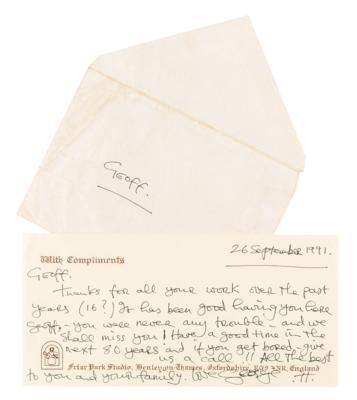 Geoff.
26 September 1991.
With Compliments
Geoff.
Thanks for all your work over the past
years (16?) It has been good having you here
Geoff, - you were never any trouble - and we
shall miss you! Have a good time in the
next 80 years and if you get bored - give
us a call!! All the best
to you and your family. George
Friar Park Studio, Henley-on-Thames, Oxfordshire, RG9 2NR, England